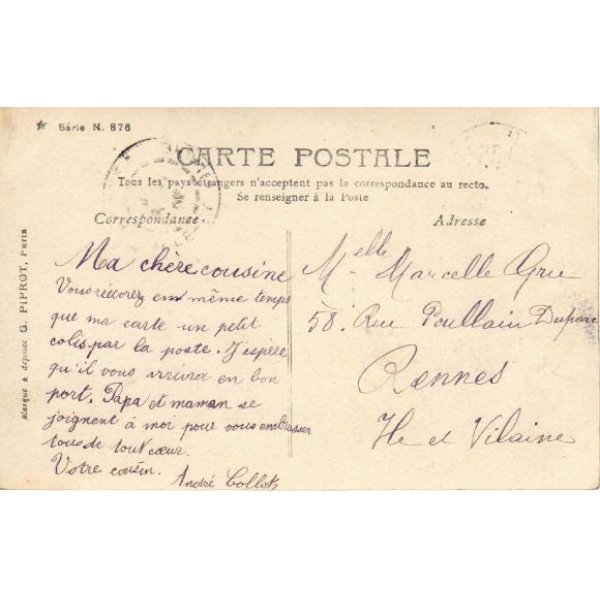 Série N. 876
CARTE POSTALE
Tous les pays étrangers n'acceptent pas la correspondance au recto.
Se renseigner à la Poste
Correspondance
Adresse
Marque déposée G. PIPROT, Paris
Ma chère cousine
Vous recevrez em même temps
que ma carte un petit
colis par la poste. J'espère
qu'il vous arrivra en bon
port. Papa et maman se
joignent à moi pour vous embrasser
tous de tout cœur.
Votre cousin.
André
Melle Marcelle Gru
58. Rue Poullain Duparc
Rennes
Ile et Vilaine